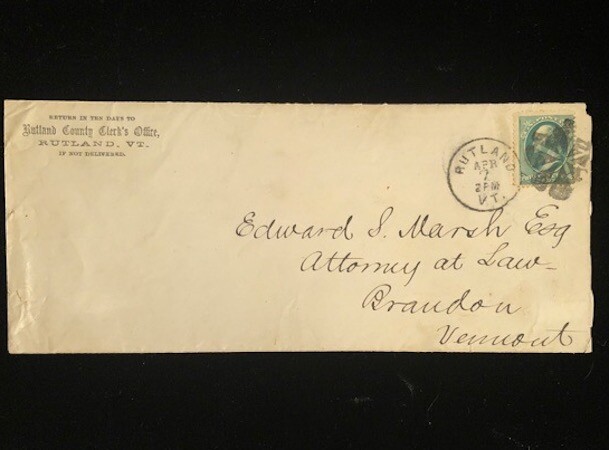 RETURN IN TEN DAYS TO
Rutland County Clerk's Office,
RUTLAND, VT.
IF NOT DELIVERED.
RUTLAND
APR
7
2 PM
VT.
Edward S. Marsh Esq
Attorney at Law
Brandon
Vermont